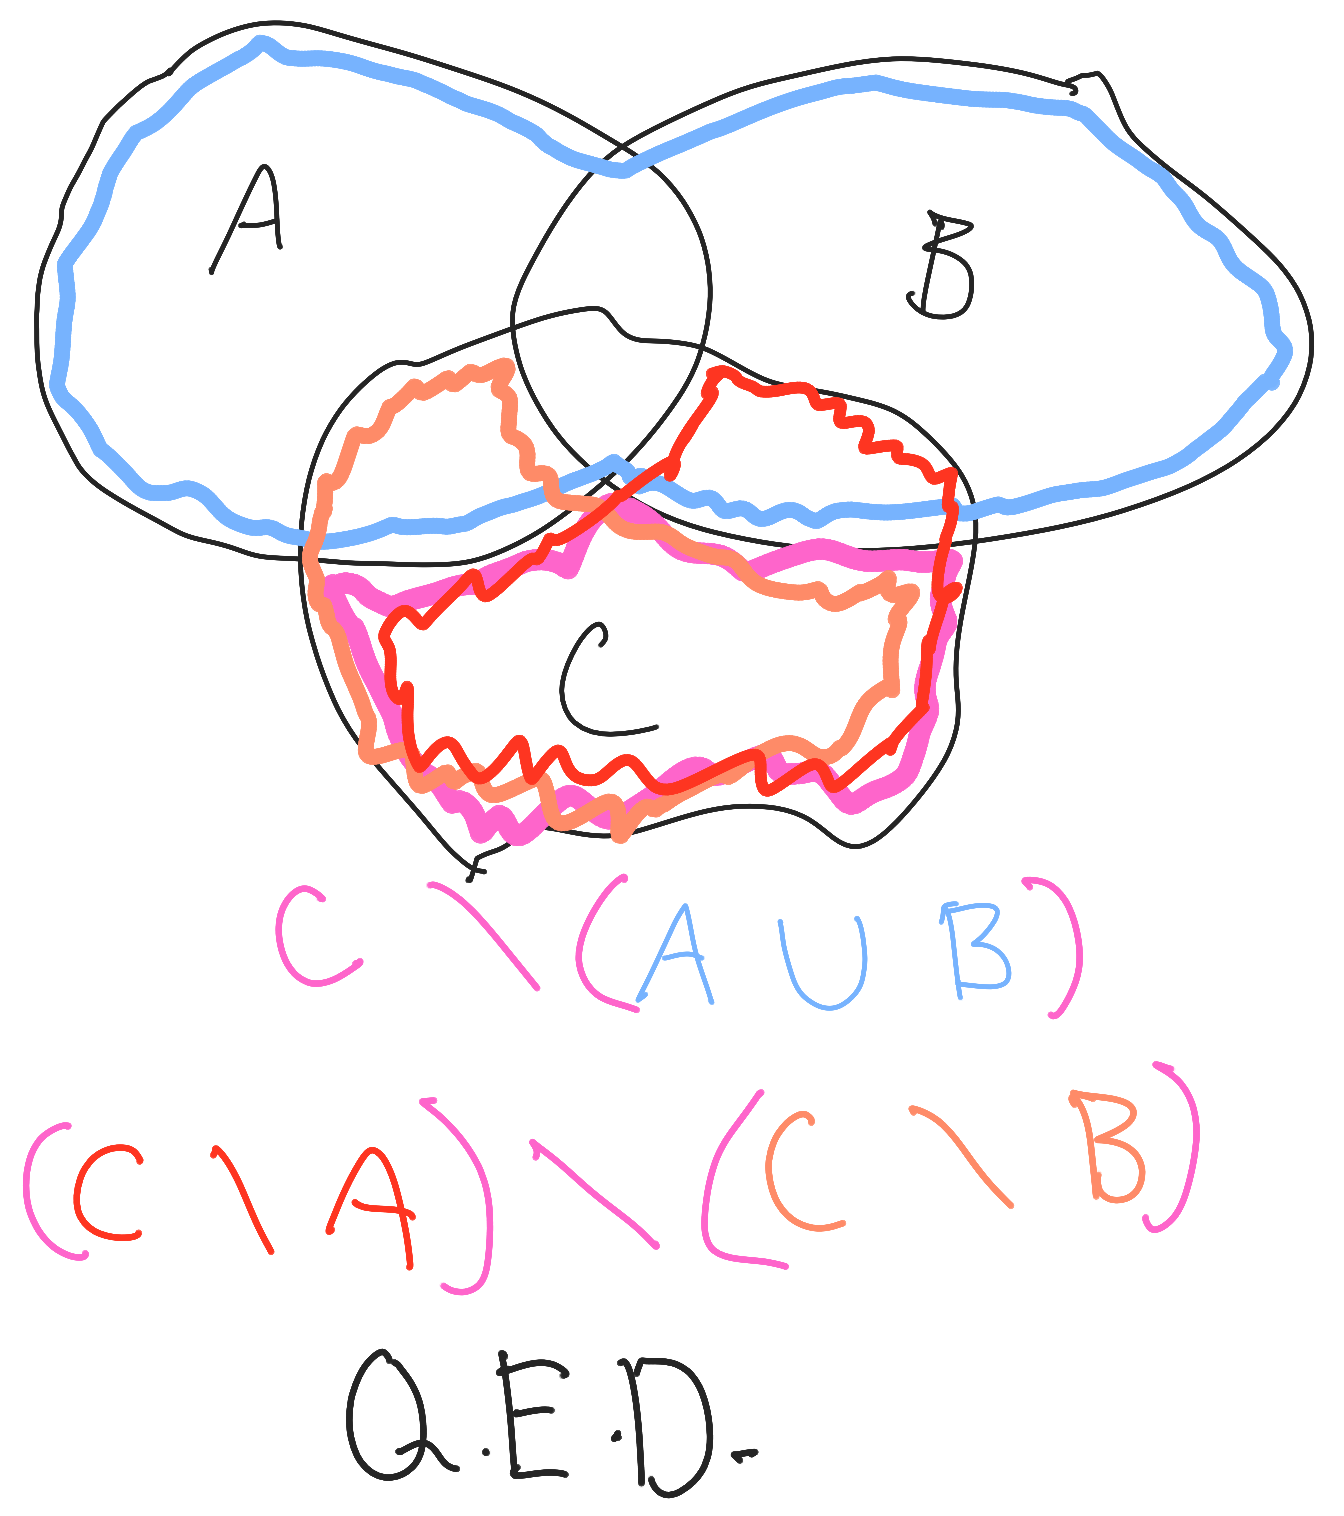 A B
C
C \ (A ∪ B)
(C \ A) \ (C \ B)
Q.E.D.